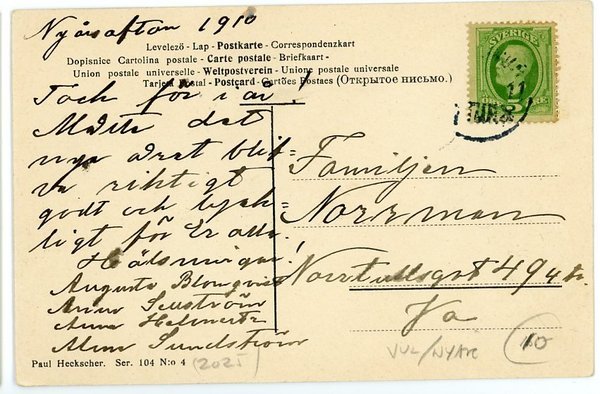 Nyårsafton 1910
Levelező - Lap - Postkarte - Correspondenzkart
Dopisnice Cartolina postale - Carte postale - Briefkaart -
Union postale universelle - Weltpostverein - Unione postale universale
Tarjeta Postal - Postcard - Cartões Postaes (Открытое письмо.)
Tack för i år!
Måtte det
nya året blif-
va riktigt
godt och lyck-
ligt för Er alla.
Hälsningar!
Augusta Blomqvist
Anna
Anna
Alma Sundström
SVERIGE
11
Familjen
Norrman
Norrtullsgat 49 4 tr.
Va
Paul Heckscher. Ser. 104 N:o 4
(2025)
JUL/NYÅR
10